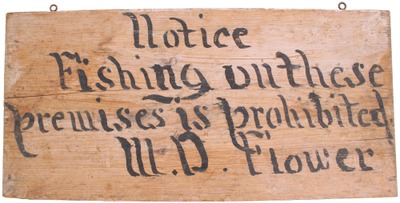 Notice
Fishing on these
premises is prohibited
M.D. Flower